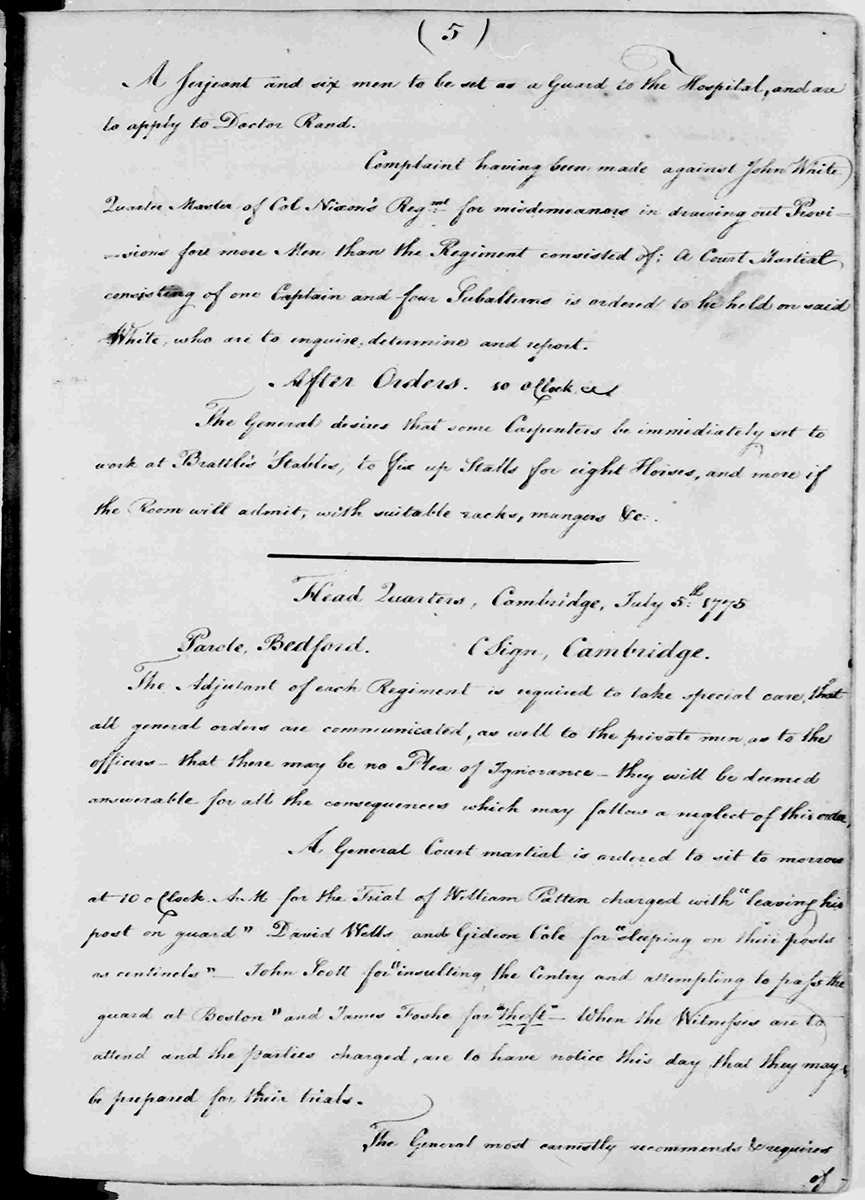 (5)
A Serjeant and six men to be set as a Guard to the Hospital, and are
to apply to Doctor Rand.
Complaint having been made against John White
Quarter Master of Col. Nixon's Regmt for misdemeanors in drawing out Provi-
-sions for more Men than the Regiment consisted of; A Court Martial
consisting of one Captain and four Subalterns is ordered to be held on said
White, who are to enquire, determine and report.
After Orders. 10 oClock
The General desires that some Carpenters be immediately set to
work at Brattle's Stables, to fix up Stalls for eight Horses, and more if
the Room will admit, with suitable racks, mangers &c.
Head Quarters, Cambridge, July 5th 1775
Parole, Bedford. CSign, Cambridge.
The Adjutant of each Regiment is required to take special care, that
all general orders are communicated, as well to the private men, as to the
officers - that there may be no Plea of Ignorance - they will be deemed
answerable for all the consequences which may follow a neglect of this order.
A General Court martial is ordered to sit to morrow
at 10 oClock A.M for the Trial of William Patten charged with "leaving his
post on guard" David Wells and Gideon Cole for "sleeping on their posts
as centinels" - John Scott for "insulting the Centry and attempting to pass the
guard at Boston" and James Foshe for "theft" - When the Witnesses are to
attend and the parties charged, are to have notice this day that they may
be prepared for their trials.
The General most earnestly recommends & requires
of -